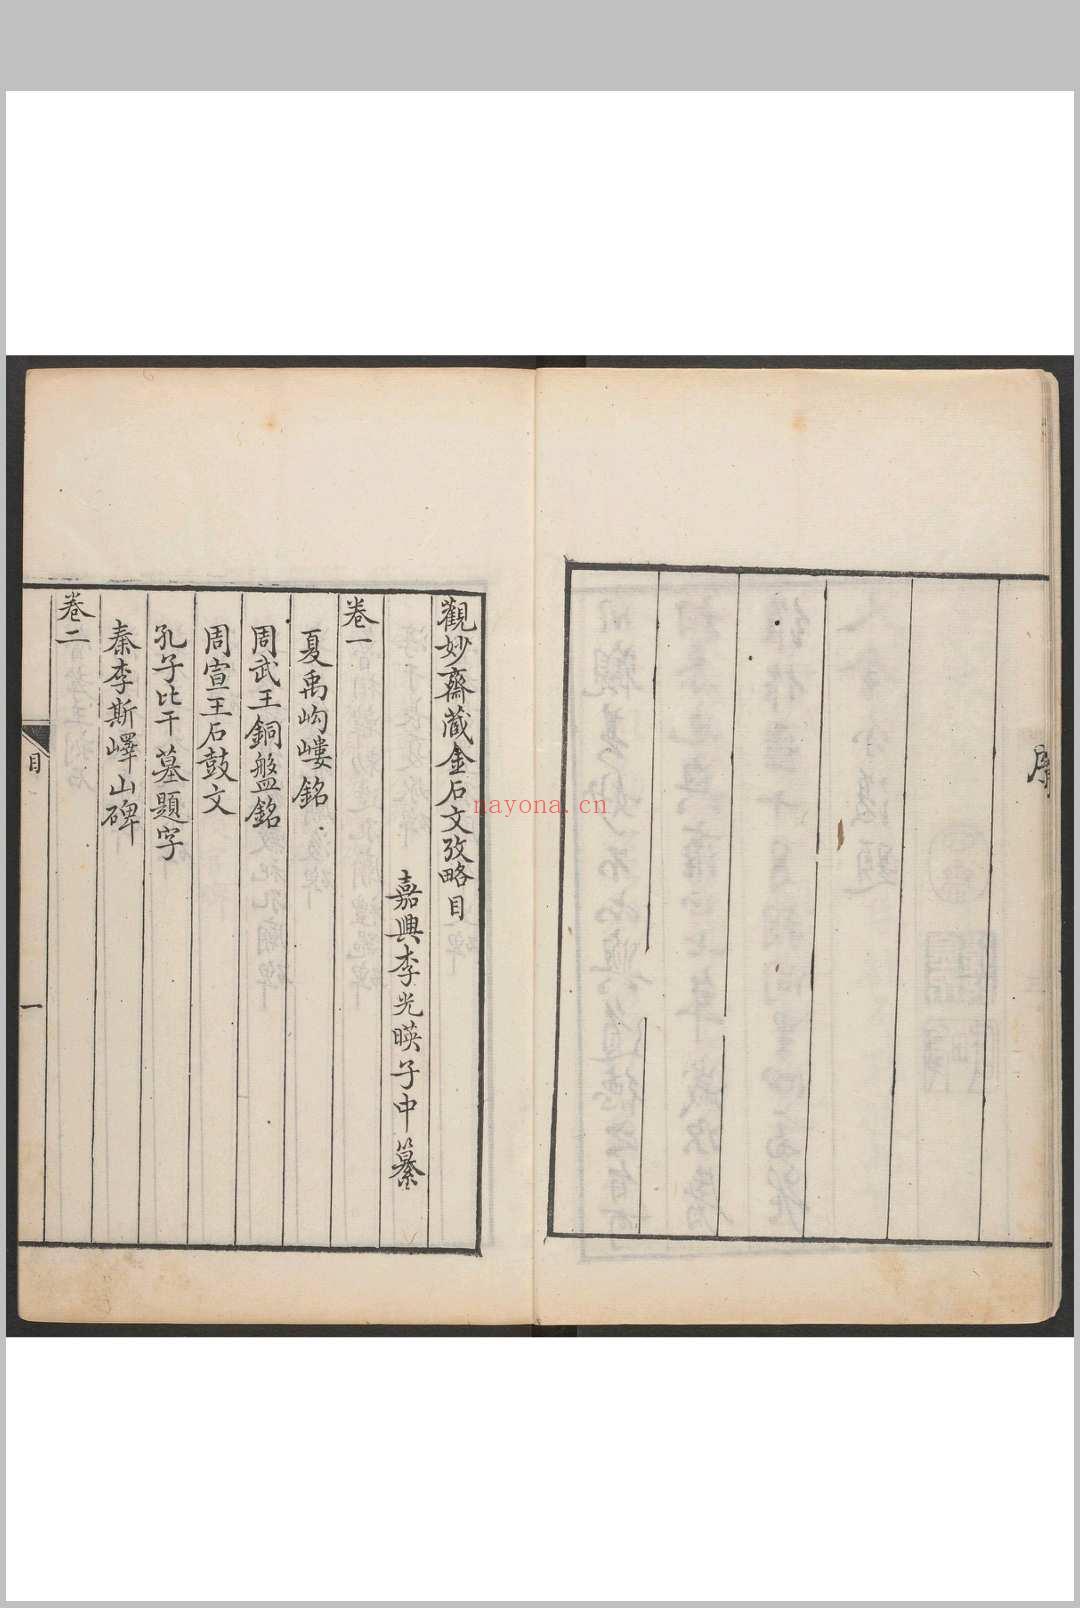 序
觀妙齋藏金石文攷略目
嘉興李光暎子中纂
卷一
夏禹岣嶁銘
周武王銅盤銘
周宣王石鼓文
孔子比干墓題字
秦李斯嶧山碑
卷二
目
一
nayona.cn